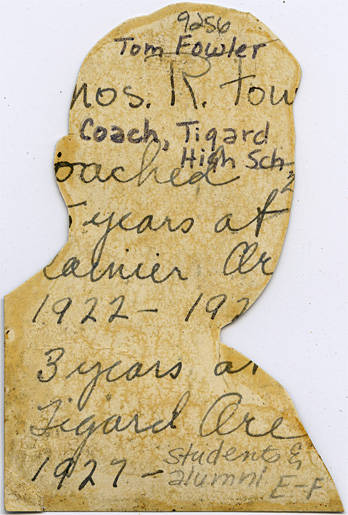 9256
Tom Fowler
hos. R. Fow
Coach, Tigard
High Sch.
oached 2
5 years at
ainier Or
1922 - 192
3 years a
Tigard Ore
1927 -
Student &
alumni E-F